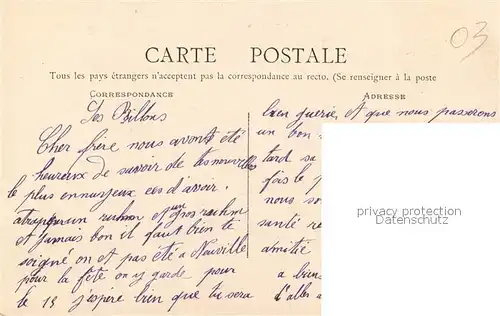 03
CARTE POSTALE
Tous les pays étrangers n'acceptent pas la correspondance au recto. (Se renseigner à la poste
CORRESPONDANCE
ADRESSE
Les Billons
Cher frère nous avont été
heureux de savoir de tes nouvelles
le plus ennuyeux ces d'avoir
atraper un ruhm un gros rachm
et jamais bon il faut bien le
soigné on et pas été a Neuville
pour la fête on y garde pour
le 15 j'espere bien que tu sera
bien guerie, et que nous passerons
un bon
tard sa
fois le
nous so
santé re
amitie
a bien
d'aller a
privacy protection
Datenschutz